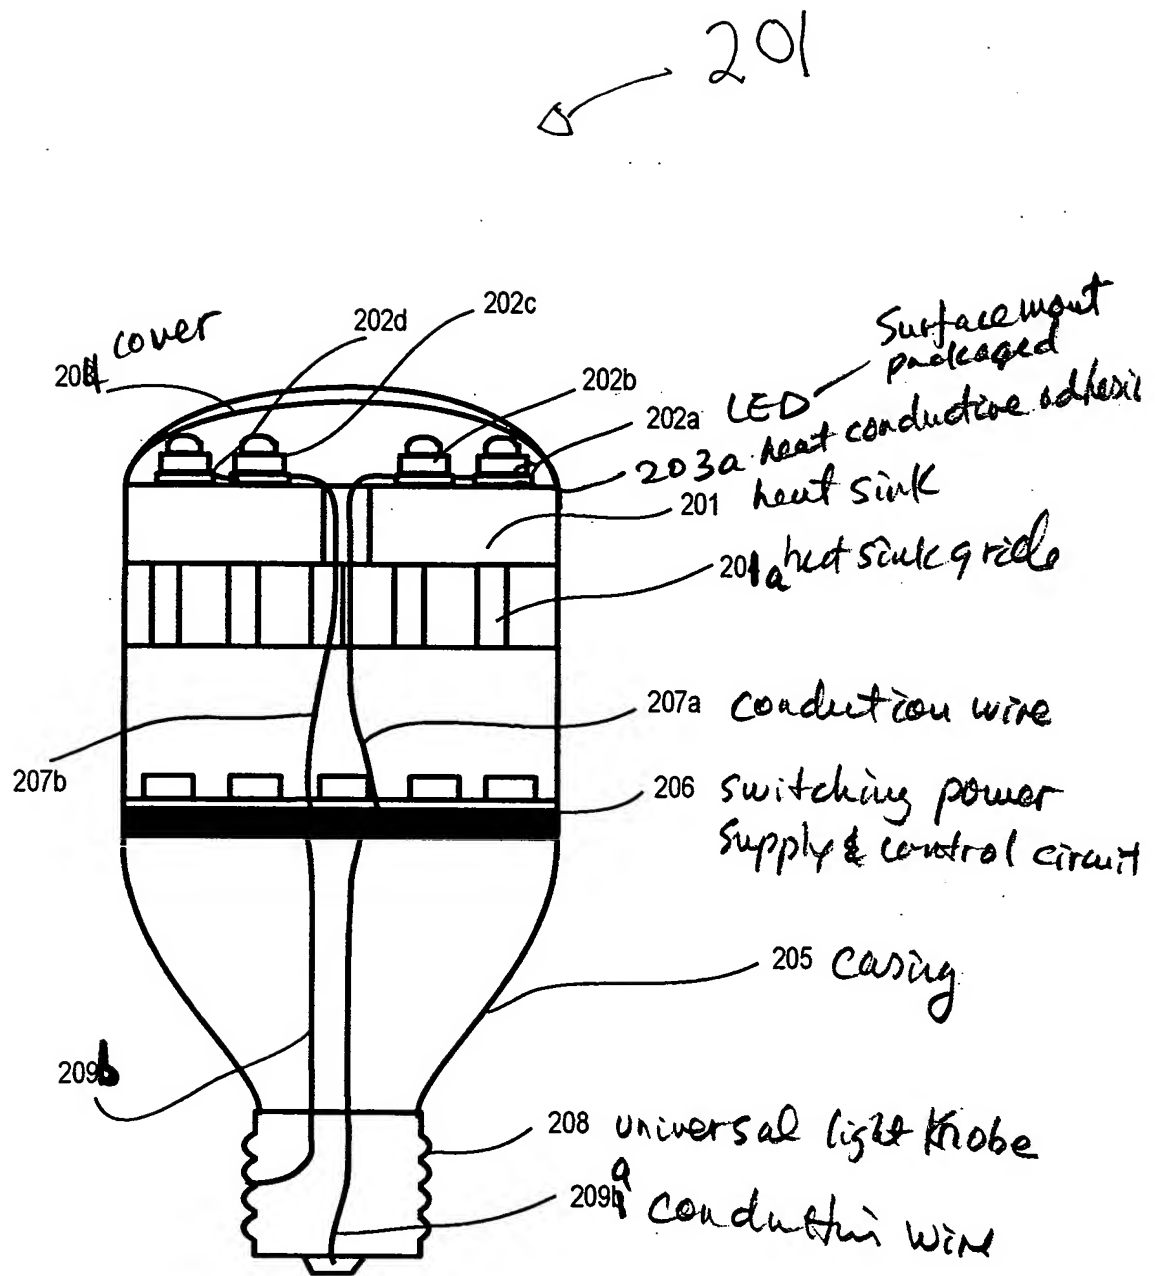 201
cover
202d
202c
204
202b
Surface mount
packaged
202a LED
203a heat conductive adhesic
201 heat sink
201a heat sink gride
207a conduction wire
207b
206 switching power
supply & control circuit
205 casing
209b
208 universal light Knobe
209a conduttin wire